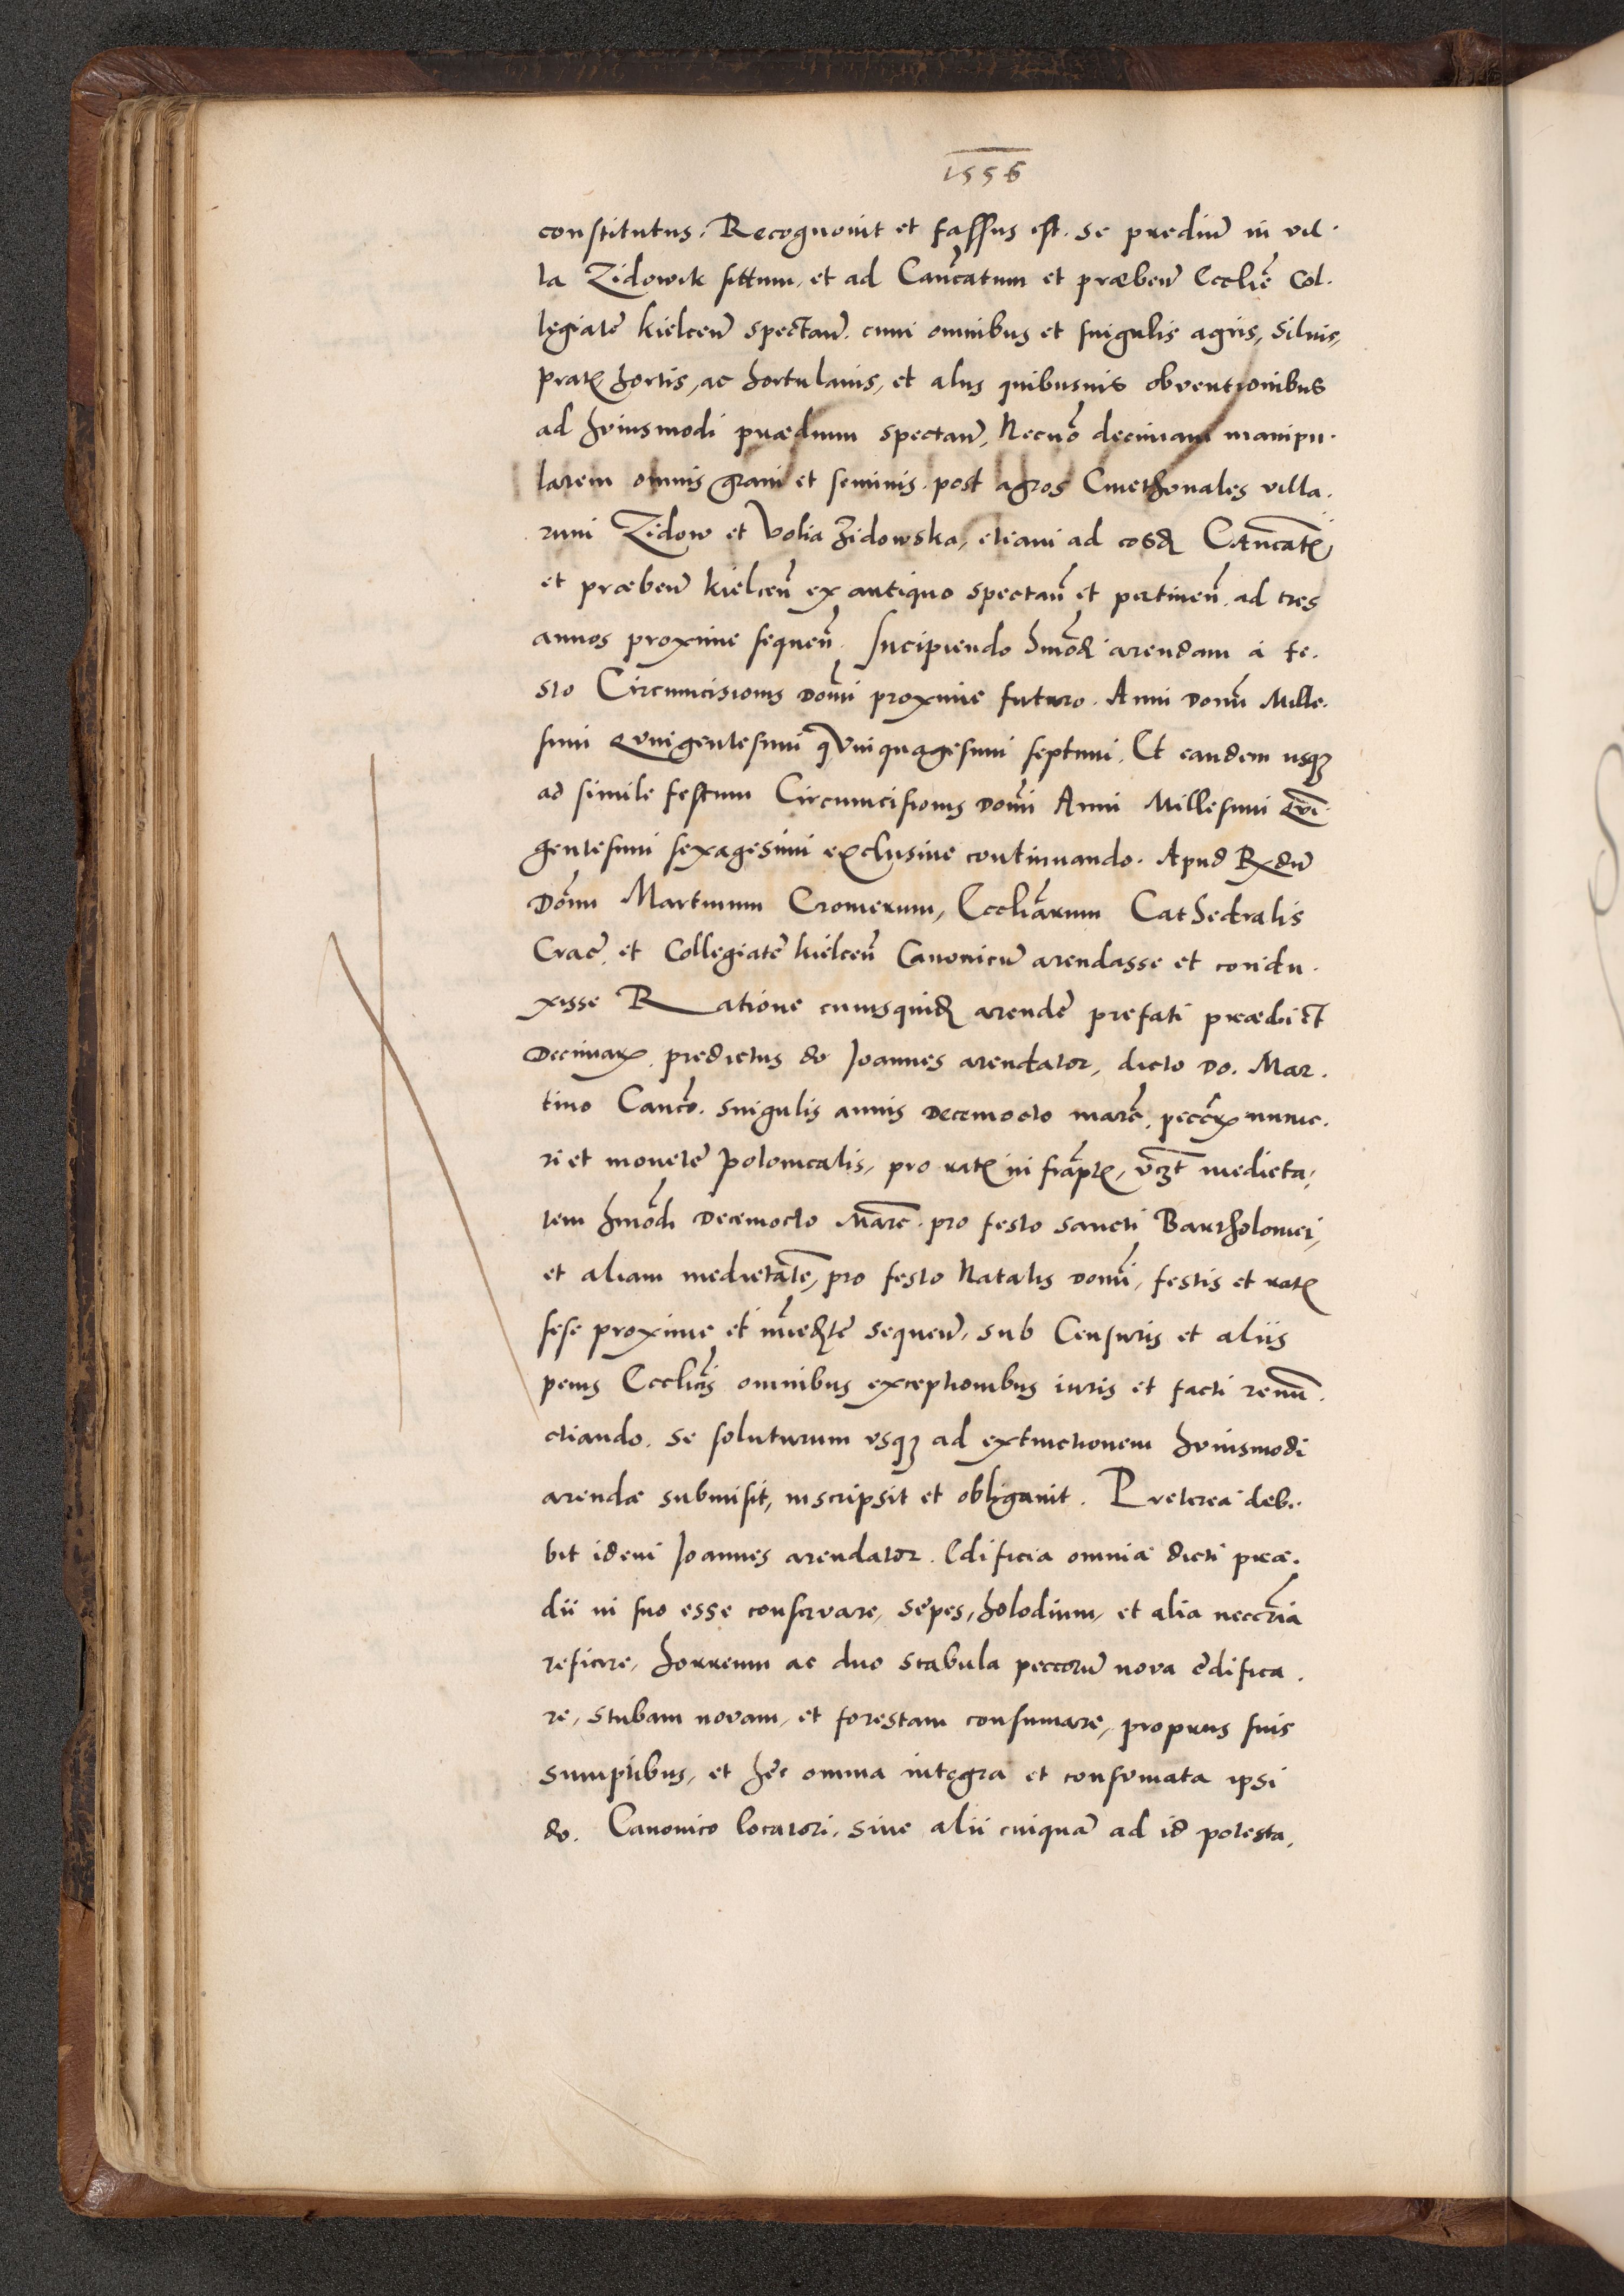 1556
constitutus. Recognouit et fassus est. se prediũ in vil.
la Zidowik sittum, et ad Cano͂catum et præbeñ Eccliȩ̃ Col.
legiatȩ kielceñ spectañ. cum omnibus et singulis agris, siluis,
prat͛ hortis, ac hortulanis, et aliis quibusuis obventionibus
ad huiusmodi prædium spectañ, Necno͂ decimam manipu.
larem omnis grani et seminis. post agros Cmethonales villa.
rum Zidow et Volia Zidowska, etiam ad eosd͛ Cano͂cat͛
et præbeñ kielceñ ex antiquo spectañ et pertineñ. ad tres
annos proxime sequeñ. Incipiendo hmo͂di arendam à fe.
sto Circumcisionis Domĩ proxime futuro. Anni Domĩ Mille.
simi Quingentesimi qVinquagesimi septimi. Et eandem usq͛
ad simile festum Circumcisionis Domĩ Anni Millesimi Quĩ.
gentesimi sexagesimi exclusiue continuando. Apud Rx̃dũ
Dom̃ Martinum Cromerum, Eccliãrum Cathedralis
Crac̃. et Collegiatȩ kielceñ Canonicũ arendasse et condu.
xisse Ratione cuiusquid͛ arendȩ prefati prædii et
Decimar͛. predictus do Joannes arendator, dicto Do. Mar.
tino Cano͂co. singulis annis Decemocto marc̃. pecc̃r͛ nume.
ri et monetȩ Polonicalis, pro rat͛ infrãpt͛, vcz̃t medieta,
tem hmo͂di Decemocto Marc̃. pro festo sancti Bartholomei,
et aliam medietate͂, pro festo Natalis Domĩ, festis et rat͛
sese proxime et im͂ed͛te sequeñ, sub Censuris et aliis
penis Ecclic̃is omnibus exceptionibus iuris et facti renũ.
ctiando. se soluturum vsq͛ ad extinctionem huiusmodi
arendæ submisit, inscripsit et obligauit. Preterea debe.
bit idem Joannes arendator. Edificia omnia dicti præ.
dii in suo esse conseruare, sepes, holodium, et alia neccr̃ia
reficere, horreum ac duo stabula peccorũ nova ȩdifica.
re, stubam novam, et forestam consumare, propriis suis
sumptibus, et hȩc omnia integra et consumata ipsi
do. Canonico locatori, siue alii cuiquã ad id potesta,